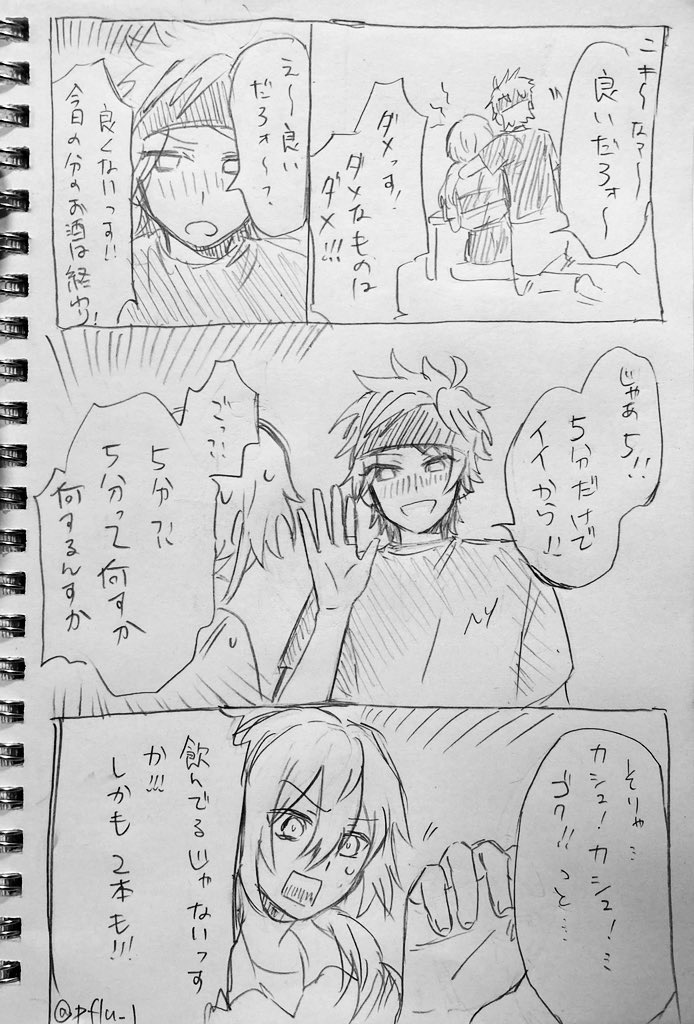 ニキ〜なァ〜
良いだろォ〜
ダメっす!
ダメなものは
ダメ!!!
え〜良い
だろォ〜?
良くないっす!!
今日の分のお酒は終わり!
じゃあち!!
5分だけで
イイから!!
ごっ?!
5分?!
5分って何すか
何するんすか
そりゃ…
カシュ!カシュ!…
ゴク!!こと…
飲んでるじゃないっす
か!!!
しかも2本も!!!
@pflu_1